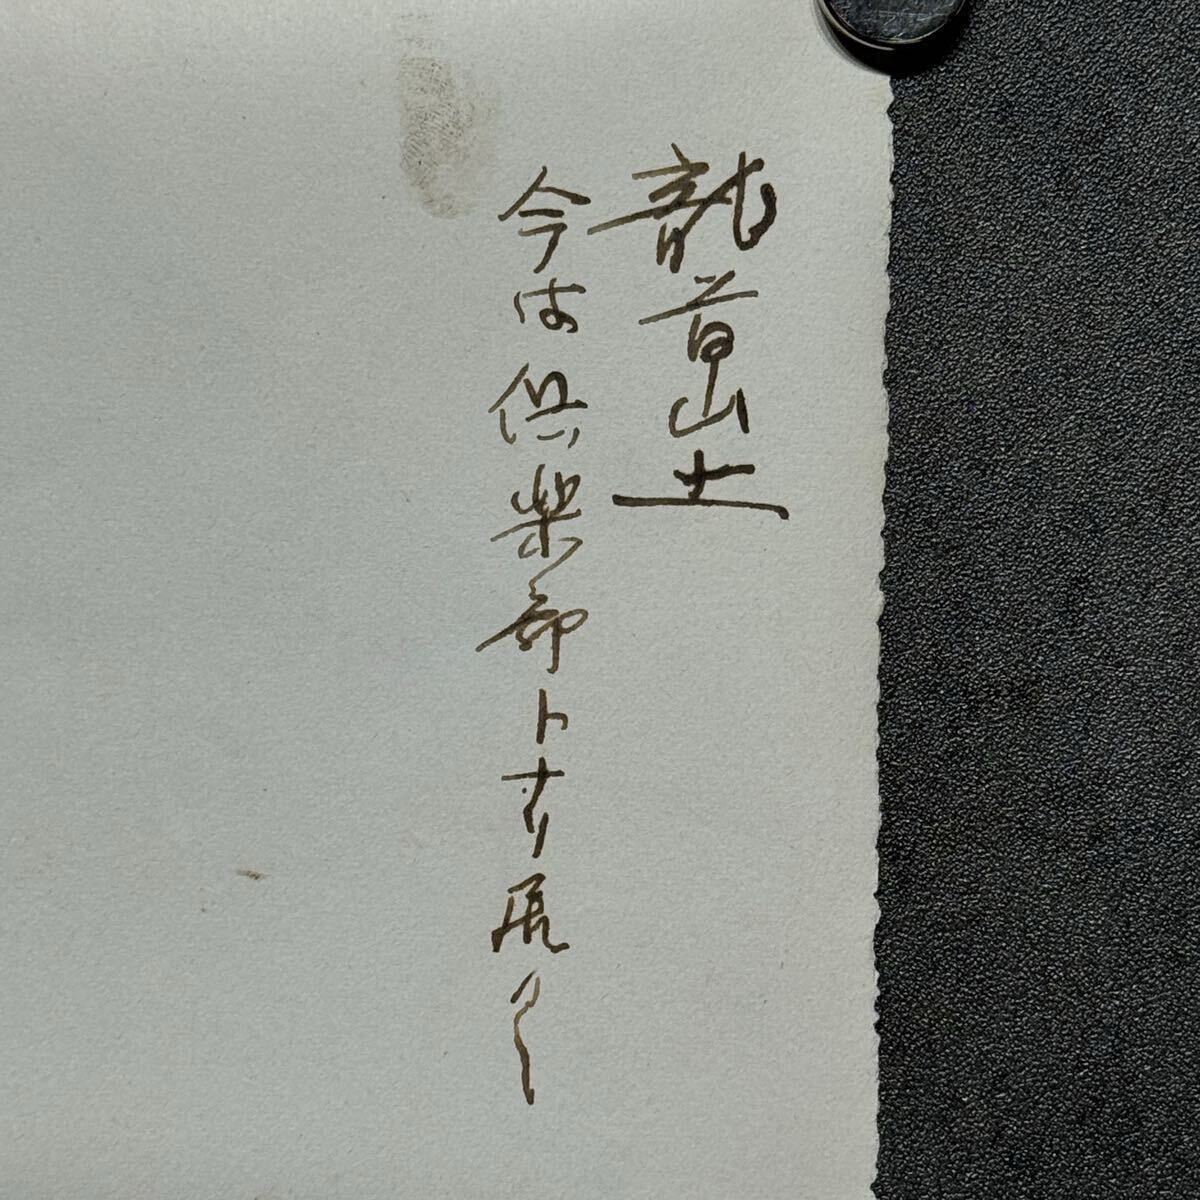 龍首山上
今は倶楽部トナリ居ル